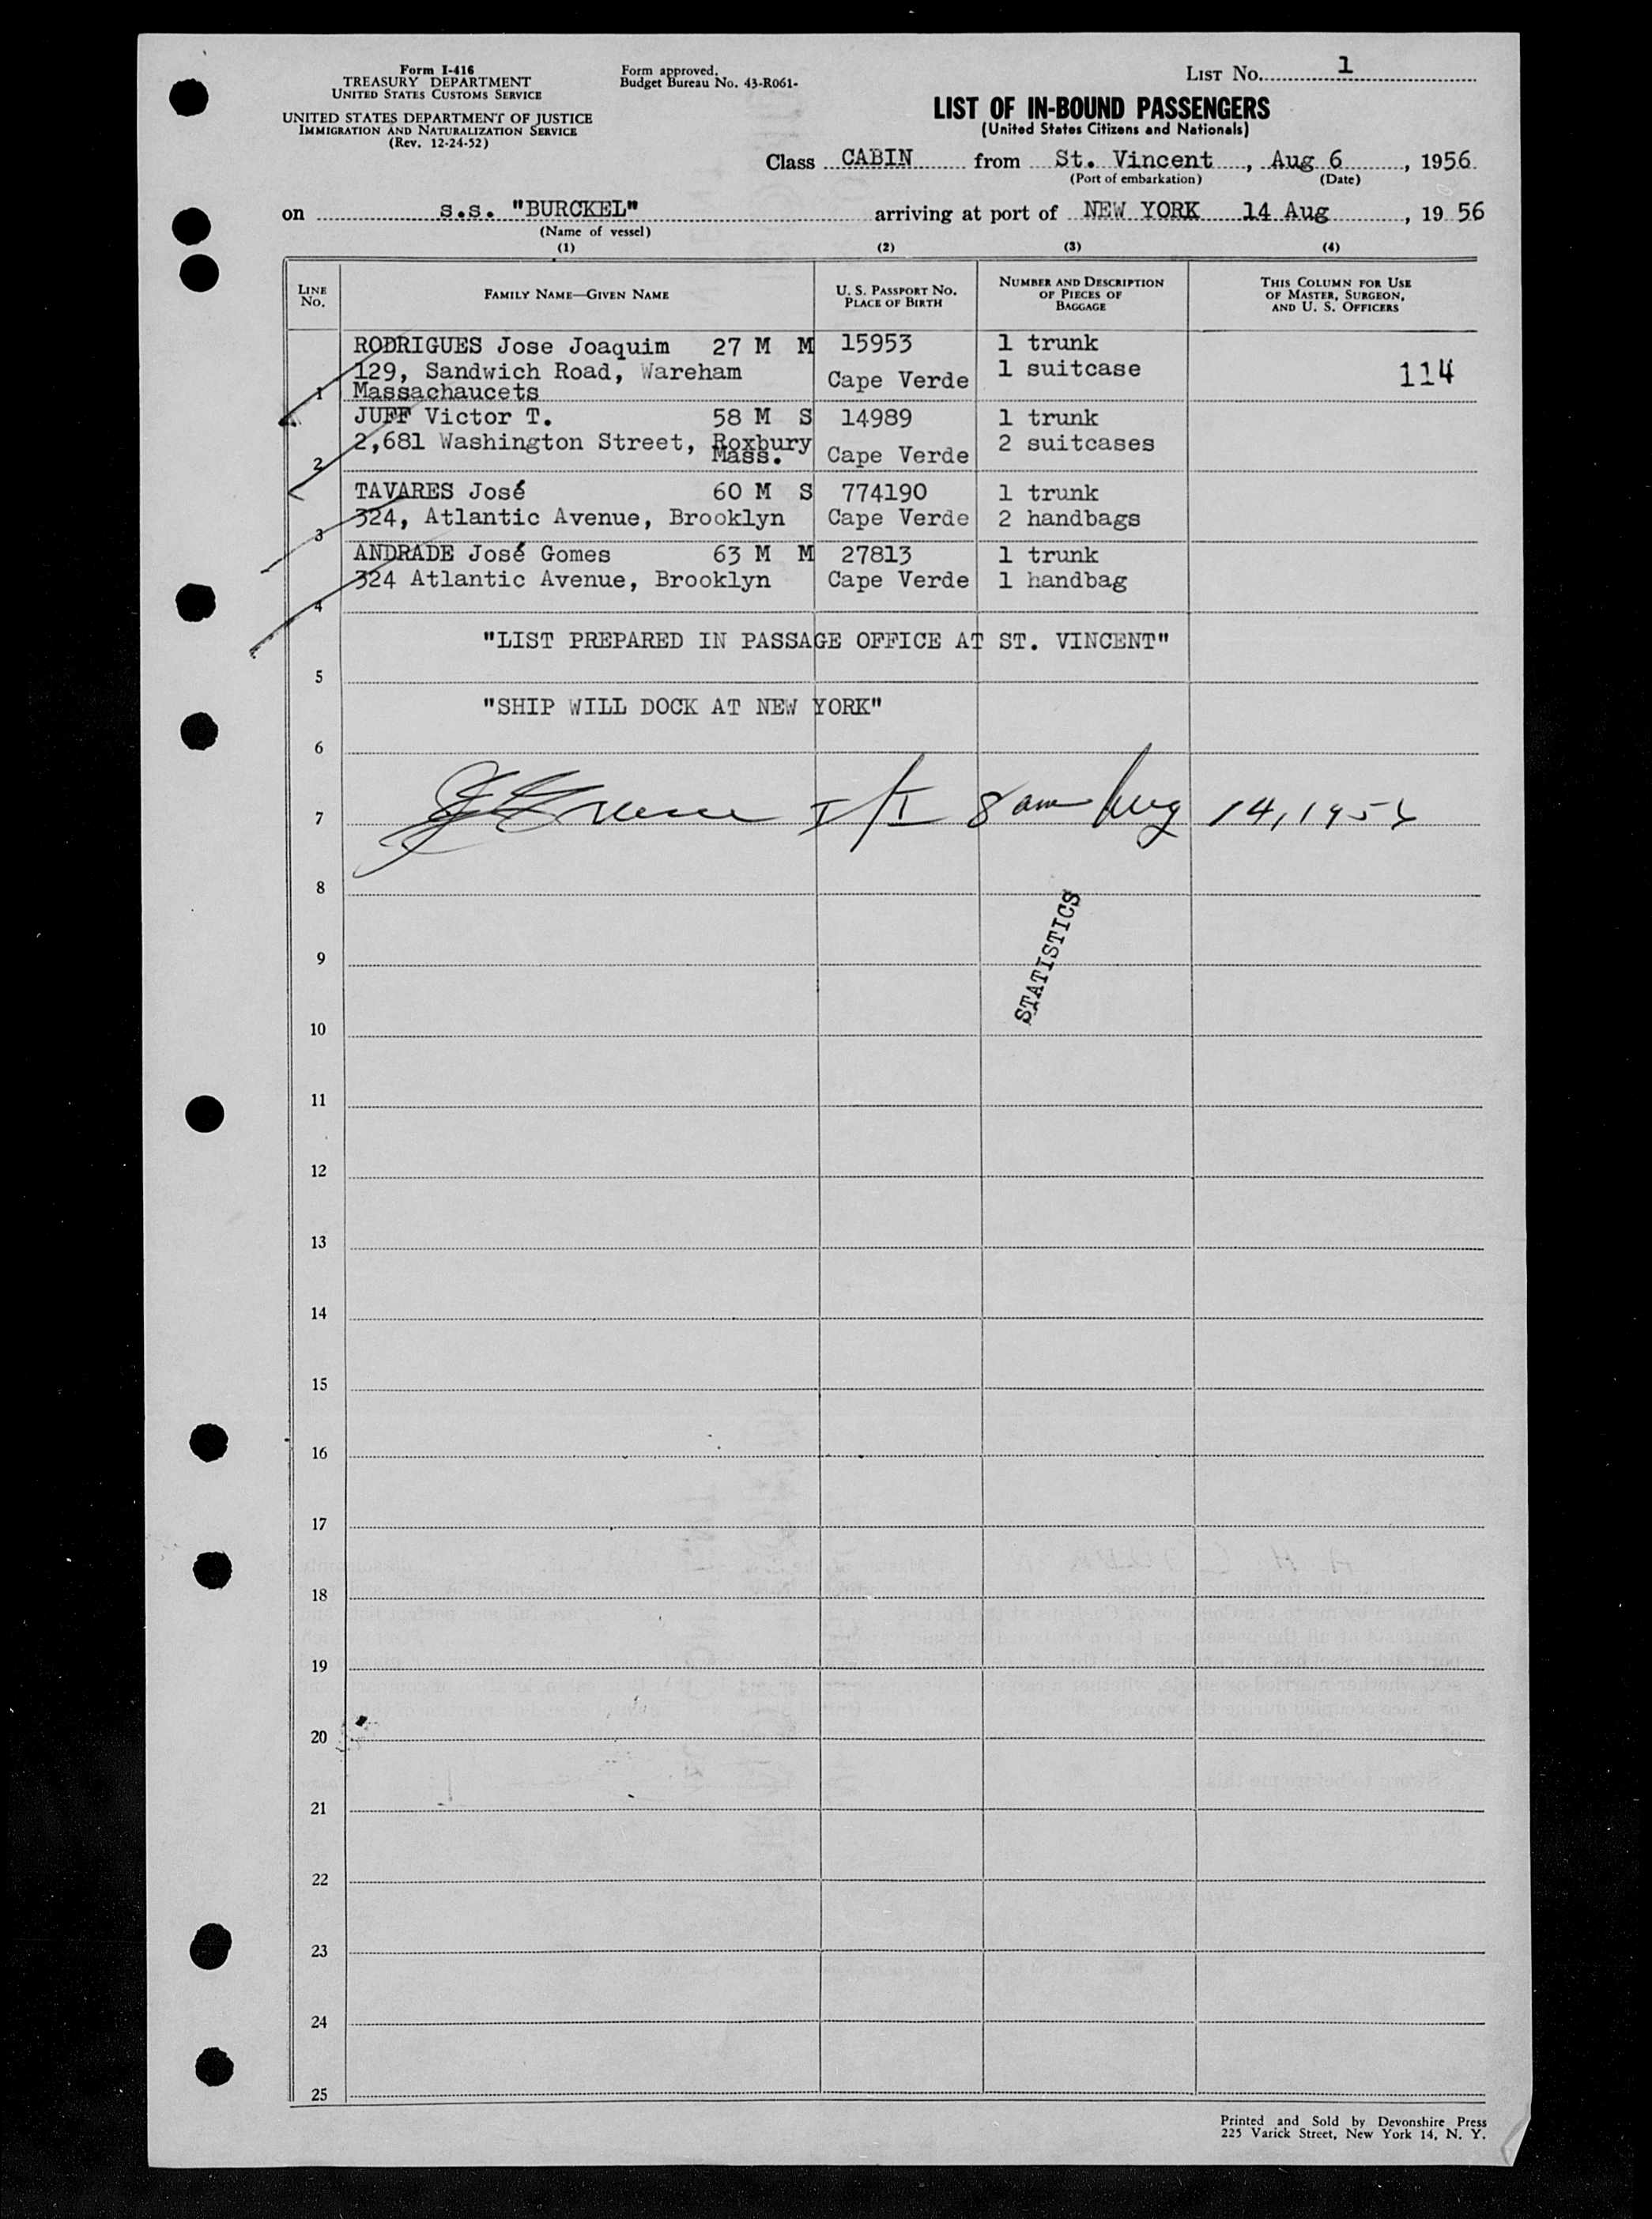 Form I-416
TREASURY DEPARTMENT
UNITED STATES CUSTOMS SERVICE
UNITED STATES DEPARTMENT OF JUSTICE
IMMIGRATION AND NATURALIZATION SERVICE
(Rev. 12-24-52)
Form approved.
Budget Bureau No. 43-R061-
LIST No. 1
LIST OF IN-BOUND PASSENGERS
(United States Citizens and Nationals)
Class CABIN from St. Vincent, Aug 6, 1956
(Port of embarkation) (Date)
on s.s. "BURCKEL" arriving at port of NEW YORK 14 Aug, 19 56
(Name of vessel)
(1) (2) (3) (4)
LINE No. FAMILY NAME—GIVEN NAME U. S. PASSPORT NO. PLACE OF BIRTH NUMBER AND DESCRIPTION OF PIECES OF BAGGAGE THIS COLUMN FOR USE OF MASTER, SURGEON, AND U. S. OFFICERS
RODRIGUES Jose Joaquim 27 M M 15953 1 trunk
129, Sandwich Road, Wareham Cape Verde 1 suitcase 114
1 Massachaucets
JUFF Victor T. 58 M S 14989 1 trunk
2,681 Washington Street, Roxbury 2 suitcases
2 Mass. Cape Verde
TAVARES José 60 M S 774190 1 trunk
324, Atlantic Avenue, Brooklyn Cape Verde 2 handbags
3
ANDRADE José Gomes 63 M M 27813 1 trunk
324 Atlantic Avenue, Brooklyn Cape Verde 1 handbag
4
"LIST PREPARED IN PASSAGE OFFICE AT ST. VINCENT"
5
"SHIP WILL DOCK AT NEW YORK"
6
7 8 am Aug 14, 1956
8
STATISTICS
9
10
11
12
13
14
15
16
17
18
19
20
21
22
23
24
25
Printed and Sold by Devonshire Press
225 Varick Street, New York 14, N. Y.